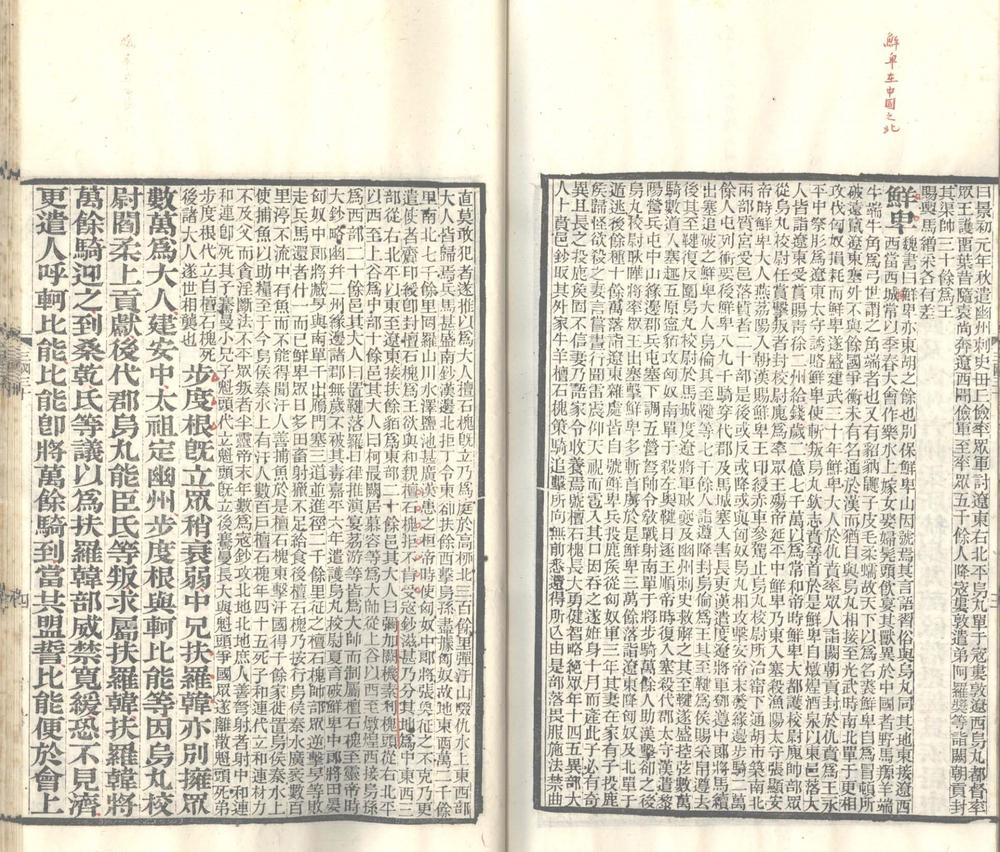 鮮卑在中國之北
曰景初元年秋遣幽州刺史毌丘儉率眾軍討遼東右北平烏丸單于寇婁敦遼西烏丸都督率
眾王護留葉昔隨袁尚奔遼西聞儉軍至率眾五千餘人降寇婁敦遣弟阿羅槃等詣闕朝貢封
其渠帥三十餘爲王
賜輿馬繒采各有差
鮮卑
魏書曰鮮卑亦東胡之餘也別保鮮卑山因號焉其言語習俗與烏丸同其地東接遼西
水西當西城常以季春大會作樂水上嫁女娶婦髡頭飲宴其獸異於中國者野馬羱羊端
牛端牛角爲弓世謂之角端者也又有貂豽鼲子皮毛柔蝡故天下以爲名裘鮮卑自爲冒頓所
破遠竄遼東塞外不與餘國爭衡未有名通於漢而猶自與烏丸相接至光武時南北單于更相
攻伐匈奴損耗而鮮卑遂盛建武三十年鮮卑大人於仇賁率眾人詣闕朝貢封於仇賁爲王永
平中祭肜爲遼東太守誘賂鮮卑使斬叛烏丸欽志賁等首於是鮮卑自燉煌酒泉以東邑落大
人皆詣遼東受賞賜青徐二州給錢歲二億七千萬以爲常和帝時鮮卑大都護校尉廆帥部眾
從烏丸校尉任尚擊叛者封校尉廆爲率眾王殤帝延平中鮮卑乃東入塞殺漁陽太守張顯安
帝時鮮卑大人燕荔陽入朝漢賜鮮卑王印綬赤車參駕止烏丸校尉所治甯下通胡市築南北
兩部質宮受邑落質者二十部是後或反或降或與匈奴烏丸相攻擊安帝末發緣邊步騎二萬
餘人屯列衝要後鮮卑八九千騎穿代郡及馬城塞入害長吏漢遣度遼將軍鄧遵中郎將馬續
出塞追破之鮮卑大人烏倫其至鞬等七千餘人詣遵降封烏倫爲王其至鞬爲侯賜采帛遵去
後其至鞬復反圍烏丸校尉於馬城度遼將軍耿夔及幽州刺史救解之其至鞬遂盛控弦數萬
騎數道入塞趣五原寧貊攻匈奴南單于殺左奧鞬日逐王順帝時復入塞殺代郡太守漢遣黎
陽營兵屯中山緣邊郡兵屯塞下調五營弩帥令教戰射南單于將步騎萬餘人助漢擊却之後
烏丸校尉耿曄將率眾王出塞擊鮮卑多斬首虜於是鮮卑三萬餘落詣遼東降匈奴及北單于
遁逃後餘種十餘萬落詣遼東雜處皆自號鮮卑兵投鹿侯從匈奴軍三年其妻在家有子投鹿
侯歸怪欲殺之妻言嘗晝行聞雷震仰天視而雹入其口因吞之遂姙身十月而產此子必有奇
異且長之投鹿侯固不信妻乃語家令收養焉號檀石槐長大勇健智略絕眾年十四五異部大
人卜賁邑鈔取其外家牛羊檀石槐策騎追擊所向無前悉還得所亡由是部落畏服施法禁曲
直莫敢犯者遂推以爲大人檀石槐既立乃爲庭於高柳北三百餘里彈汗山啜仇水上東西部
大人皆歸焉兵馬甚盛南鈔漢邊北拒丁令東却扶餘西擊烏孫盡據匈奴故地東西萬二千餘
里南北七千餘里罔羅山川水澤鹽池甚廣漢患之桓帝時使匈奴中郎將張奐征之不克乃更
遣使者齎印綬卽封檀石槐爲王欲與和親檀石槐拒不肯受寇鈔滋甚乃分其地爲中東西三
部從右北平以東至遼東接扶餘貊爲東部二十餘邑其大人曰彌加闕機素利槐頭從右北平
以西至上谷爲中部十餘邑其大人曰柯最闕居慕容等爲大帥從上谷以西至燉煌西接烏孫
爲西部二十餘邑其大人曰置鞬落羅日律推演宴荔游等皆爲大帥而制屬檀石槐至靈帝時
大鈔略幽幷二州緣邊諸郡無歲不被其毒嘉平六年遣護烏丸校尉夏育破鮮卑中郎將田晏
匈奴中郎將臧旻與南單于出鴈門塞三道並進徑二千餘里征之檀石槐帥部眾逆擊旻等敗
走兵馬還者什一而已鮮卑眾日多田畜射獵不足給食後檀石槐乃按行烏侯秦水廣袤數百
里停不流中有魚而不能得聞汗人善捕魚於是檀石槐東擊汗國得千餘家徙置烏侯秦水上
使捕魚以助糧至于今烏侯秦水上有汗人數百戶檀石槐年四十五死子和連代立和連材力
不及父而貪淫斷法不平眾叛者半靈帝末年數爲寇鈔攻北地北地庶人善弩射者射中和連
和連卽死其子騫曼小兄子魁頭代立魁頭旣立後騫曼長大與魁頭爭國眾遂離散魁頭死弟
步度根代立自檀石槐死
後諸大人遂世相襲也
步度根旣立眾稍衰弱中兄扶羅韓亦別擁眾
數萬爲大人建安中太祖定幽州步度根與軻比能等因烏丸校
尉閻柔上貢獻後代郡烏丸能臣氐等叛求屬扶羅韓扶羅韓將
萬餘騎迎之到桑乾氐等議以爲扶羅韓部威禁寬緩恐不見濟
更遣人呼軻比能比能卽將萬餘騎到當共盟誓比能便於會上